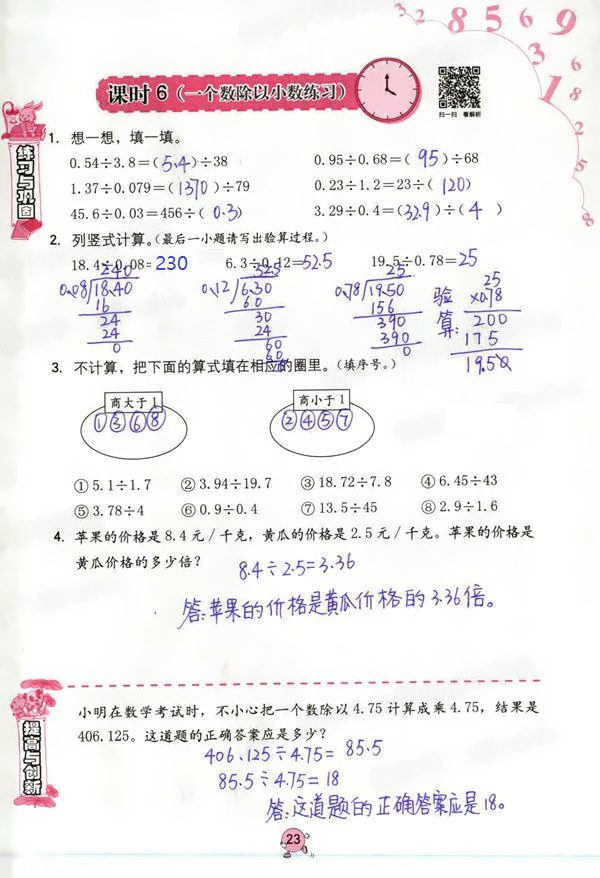 3 2 8 5 6 9 3 1 6 8 2 5 8
课时 6（一个数除以小数练习）
扫一扫 看解析
练习与巩固
1. 想一想，填一填。
0.54÷3.8=(5.4)÷38 0.95÷0.68=(95)÷68
1.37÷0.079=(1370)÷79 0.23÷1.2=23÷(120)
45.6÷0.03=456÷(0.3) 3.29÷0.4=(32.9)÷(4)
2. 列竖式计算。（最后一小题请写出验算过程。）
18.4÷0.08=230 6.3÷0.12=52.5 19.5÷0.78=25
240
0.08 18.40
16
24
24
0
0.12 6.30
60
30
24
60
60
25
0.78 19.50
156
390
390
0
验算:
25
×0.78
200
175
19.50
3. 不计算，把下面的算式填在相应的圈里。（填序号。）
商大于1 商小于1
①③⑥⑧ ②④⑤⑦
①5.1÷1.7 ②3.94÷19.7 ③18.72÷7.8 ④6.45÷43
⑤3.78÷4 ⑥0.9÷0.4 ⑦13.5÷45 ⑧2.9÷1.6
4. 苹果的价格是8.4元/千克，黄瓜的价格是2.5元/千克。苹果的价格是
黄瓜价格的多少倍？
8.4÷2.5=3.36
答:苹果的价格是黄瓜价格的3.36倍。
提高与创新
小明在数学考试时，不小心把一个数除以4.75计算成乘4.75，结果是
406.125。这道题的正确答案应是多少？
406.125÷4.75=85.5
85.5÷4.75=18
答:这道题的正确答案应是18。
23